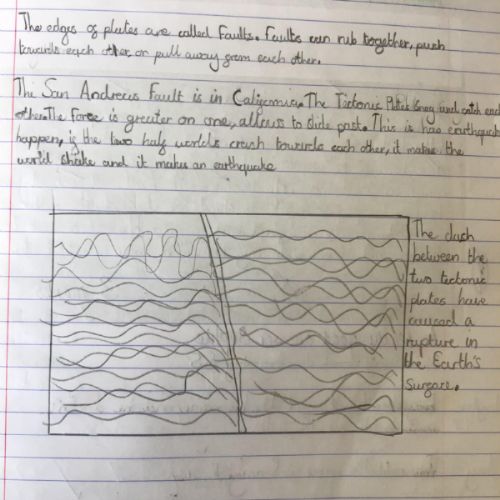 The edges of plates are called Faults. Faults can rub together, push
towards each other or pull away from each other.
The San Andreas Fault is in California. The Tictonic Plates and catch each
other. The force is greater on one, allows to slide past. This is how earthquakes
happen, if the two half worlds crush towards each other, it makes the
world shake and it makes an earthquake
The clash
between the
two tectonic
plates have
caused a
rupture in
the Earth's
surface.